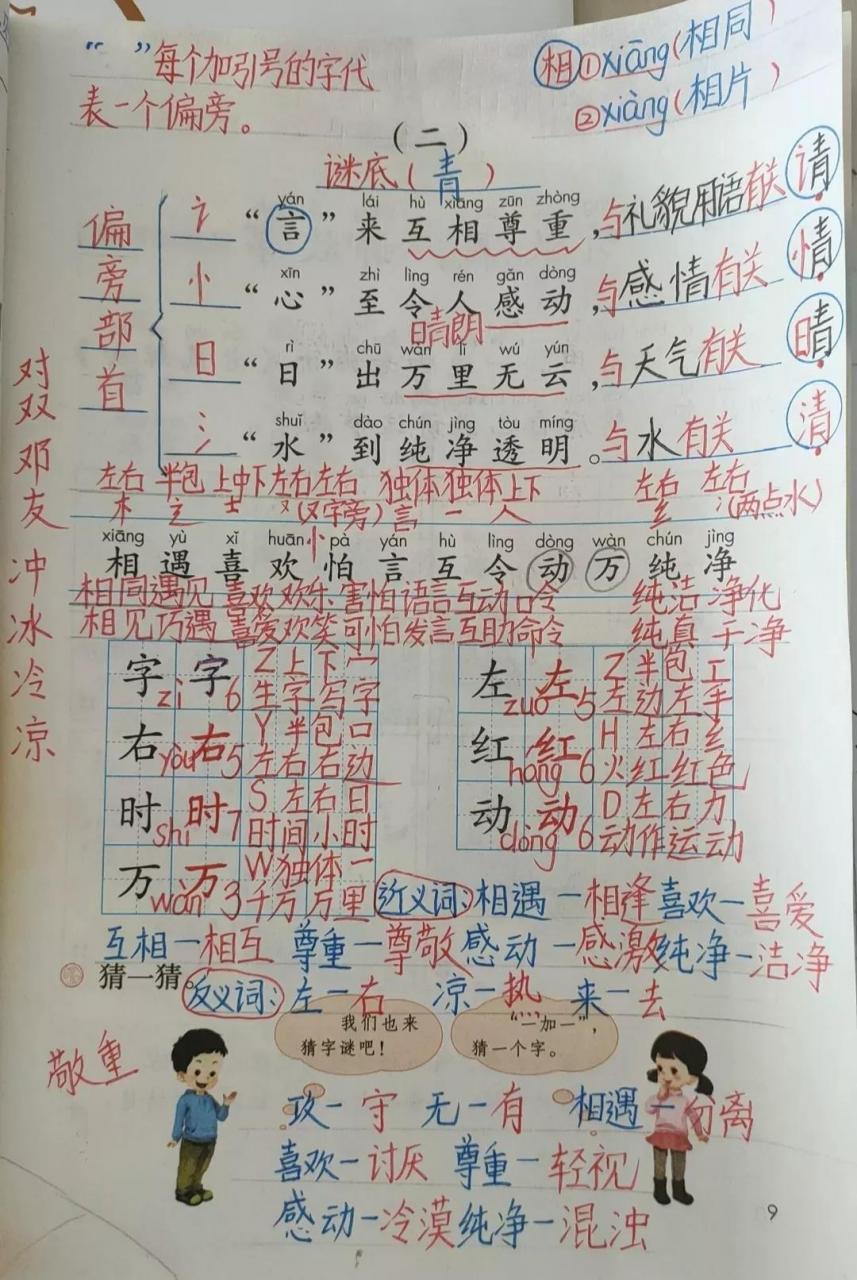 “ ”每个加引号的字代
表一个偏旁。
相①xiāng(相同)
②xiàng(相片)
(二)
谜底(青)
偏旁部首
yán lái hù xiāng zūn zhòng
讠“言”来互相尊重,与礼貌用语有关 请
xīn zhì lìng rén gǎn dòng
忄“心”至令人感动,与感情有关 情
晴朗
rì chū wàn lǐ wú yún
日“日”出万里无云,与天气有关 晴
shuǐ dào chún jìng tòu míng
氵“水”到纯净透明。与水有关 清
对双邓友
冲冰冷凉
左右 半包 上中下 左右 左右 独体 独体 上下 左右 左右
木 辶 士 又(又字旁) 言 一 人 纟 冫(两点水)
xiāng yù xǐ huān pà yán hù lìng dòng wàn chún jìng
相 遇 喜 欢 忄 怕 言 互 令 动 万 纯 净
相同 遇见 喜欢 欢乐 害怕 语言 互动 口令 纯洁 净化
相见 巧遇 喜爱 欢笑 可怕 发言 互助 命令 纯真 干净
字 字 Z 上下 宀
zì 6 生字 写字
左 左 Z 半包 工
zuǒ 5 左边 左手
右 右 Y 半包 口
yòu 5 左右 右动
红 红 H 左右 纟
hóng 6 火红 红色
时 时 S 左右 日
shí 7 时间 小时
动 动 D 左右 力
dòng 6 动作 运动
万 万 W 独体 一
wàn 3 千万 万里
近义词:相遇—相逢 喜欢—喜爱
互相—相互 尊重—尊敬 感动—感激 纯净—洁净
猜一猜。
反义词:左—右 凉—热 来—去
我们也来
猜字谜吧!
“一加一”,
猜一个字。
敬重
攻—守 无—有 相遇—分离
喜欢—讨厌 尊重—轻视
感动—冷漠 纯净—混浊
9